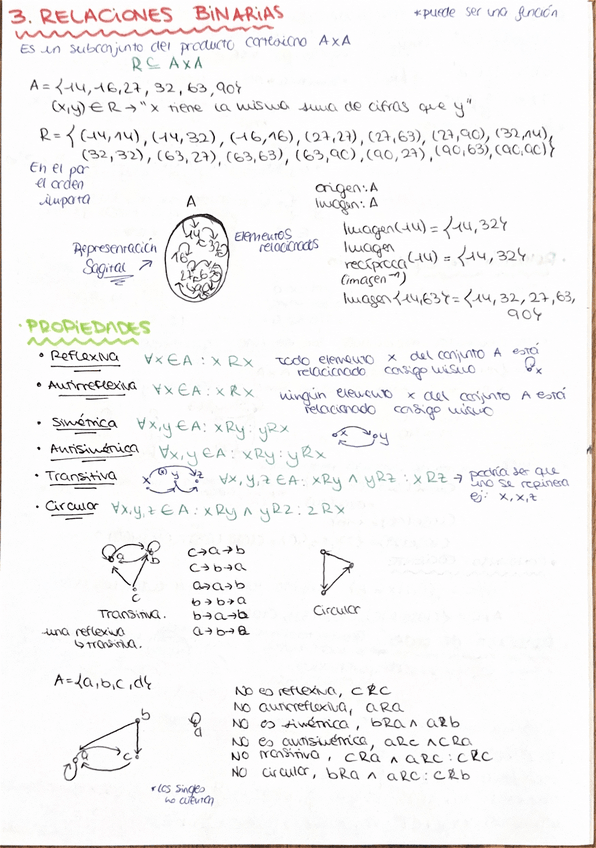 3. RELACIONES BINARIAS
*puede ser una función
Es un subconjunto del producto cartesiano A×A
R ⊆ A×A
A = {14, -16, 27, 32, 63, 90}
(x,y) ∈ R → "x tiene la misma suma de cifras que y"
R = { (-14,14), (-14,32), (-16,16), (27,27), (27,63), (27,90), (32,14),
(32,32), (63,27), (63,63), (63,90), (90,27), (90,63), (90,90)}
En el par
el orden
importa
A
origen: A
Imagen: A
Representación
Sagital
14
32
16
27
63
90
Elementos
relacionados
Imagen(14) = {14, 32}
Imagen
recíproca (14) = {14, 32}
(imagen⁻¹)
Imagen{14,63} = {14, 32, 27, 63,
90}
· PROPIEDADES
• Reflexiva ∀x∈A : x R x todo elemento x del conjunto A está
relacionado consigo mismo
x
• Antirreflexiva ∀x∈A : x R̸ x ningún elemento x del conjunto A está
relacionado consigo mismo
• Simétrica ∀x,y∈A : xRy : yRx
x y
• Antisimétrica ∀x,y∈A : xRy : yR̸x
• Transitiva x y z ∀x,y,z∈A : xRy ∧ yRz : xRz → podría ser que
uno se repitiera
ej: x, x, z
• Circular ∀x,y,z∈A : xRy ∧ yRz : zRx
a b
c
Transitiva.
una reflexiva
↳ transitiva.
c→a→b
c→b→a
a→a→b
b→b→a
b→a→b
a→b→a
Circular
A={a,b,c,d}
b
d
a c
*los singles
no cuentan
No es reflexiva, cR̸c
No antirreflexiva, aRa
No es simétrica, bRa ∧ aR̸b
No es antisimétrica, aRc ∧ cRa
No transitiva, cRa ∧ aRc : cR̸c
No circular, bRa ∧ aRc : cR̸b